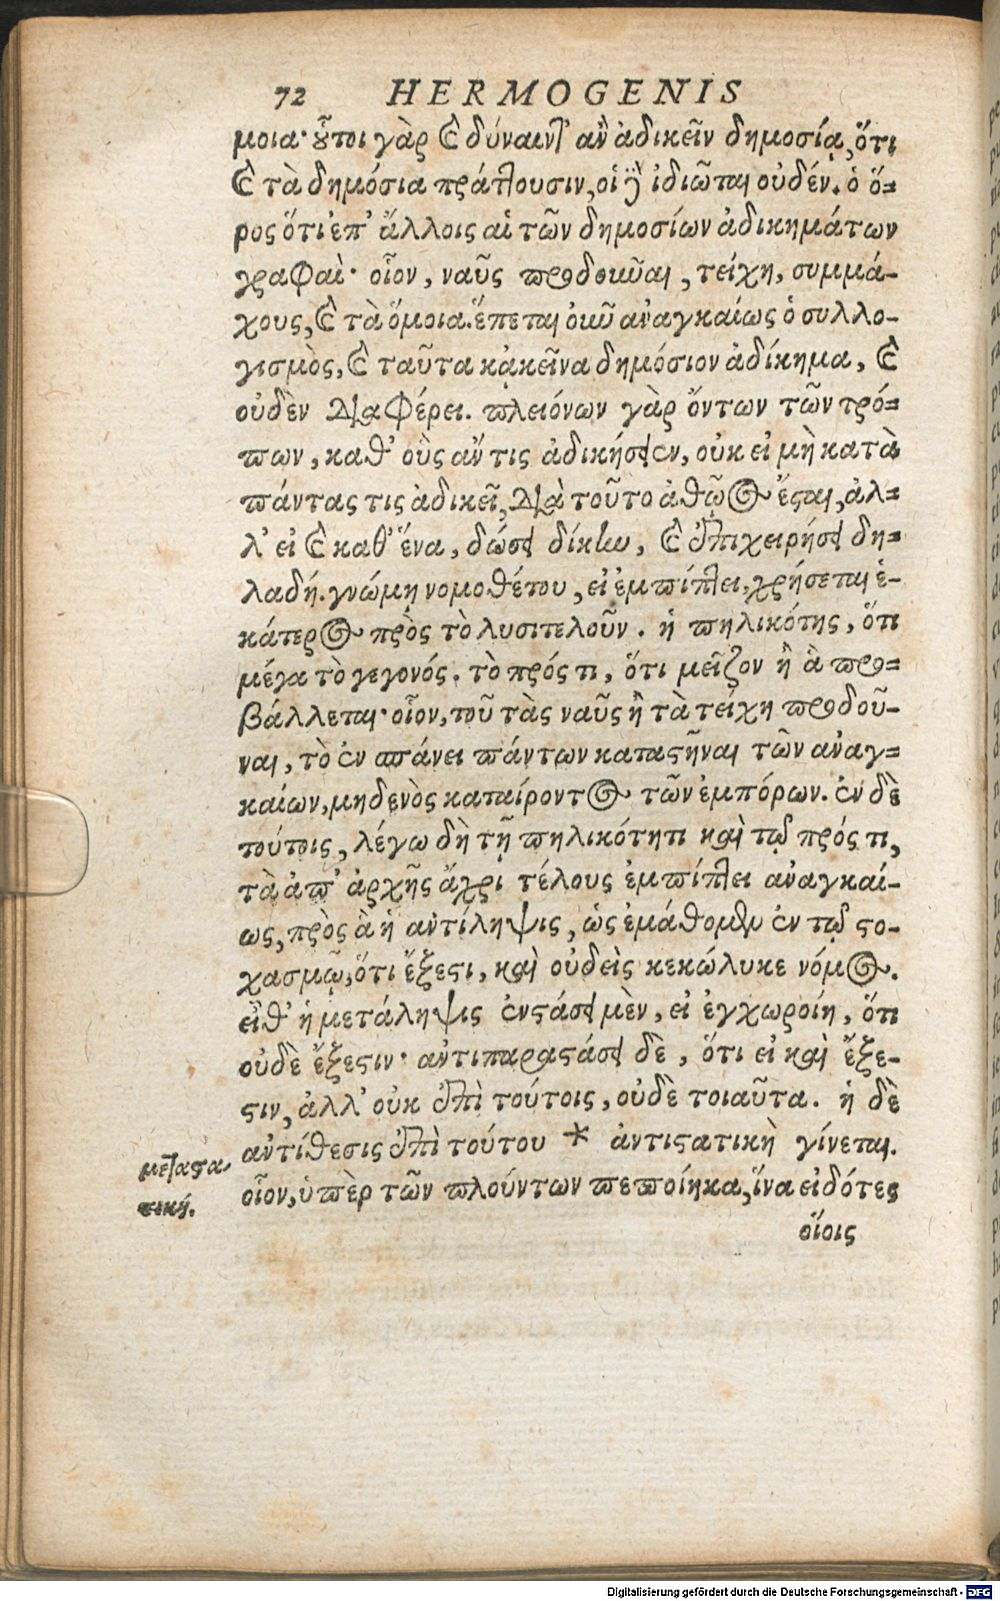 72 HERMOGENIS
μοια· οὗτοι γὰρ καὶ δύναιντ' ἂν ἀδικεῖν δημοσίᾳ, ὅτι
καὶ τὰ δημόσια πράττουσιν, οἱ δὲ ἰδιῶται οὐδέν. ὁ ὅ=
ρος ὅτι ἐπ' ἄλλοις αἱ τῶν δημοσίων ἀδικημάτων
γραφαὶ· οἷον, ναῦς προδοῦναι, τείχη, συμμά-
χους, καὶ τὰ ὅμοια. ἕπεται οὖν ἀναγκαίως ὁ συλλο-
γισμὸς, καὶ ταῦτα κἀκεῖνα δημόσιον ἀδίκημα, καὶ
οὐδὲν διαφέρει. πλειόνων γὰρ ὄντων τῶν τρό=
πων, καθ' οὓς ἄν τις ἀδικήσειεν, οὐκ εἰ μὴ κατὰ
πάντας τις ἀδικεῖ, διὰ τοῦτο ἀθῷος ἔσται, ἀλ=
λ' εἰ καὶ καθ' ἕνα, δώσει δίκην, καὶ ἐπιχειρήσει δη=
λαδή. γνώμῃ νομοθέτου, εἰ ἐμπίπτει, χρήσεται ἑ-
κάτερος πρὸς τὸ λυσιτελοῦν. ἡ πηλικότης, ὅτι
μέγα τὸ γεγονός. τὸ πρός τι, ὅτι μεῖζον ἢ ἃ προ=
βάλλεται· οἷον, τοῦ τὰς ναῦς ἢ τὰ τείχη προδοῦ-
ναι, τὸ ἐν σπάνει πάντων καταστῆναι τῶν ἀναγ=
καίων, μηδενὸς καταίροντος τῶν ἐμπόρων. ἐν δὲ
τούτοις, λέγω δὴ τῇ πηλικότητι καὶ τῷ πρός τι,
τὰ ἀπ' ἀρχῆς ἄχρι τέλους ἐμπίπτει ἀναγκαί-
ως, πρὸς ἃ ἡ ἀντίληψις, ὡς ἐμάθομεν ἐν τῷ στο-
χασμῷ, ὅτι ἔξεστι, καὶ οὐδεὶς κεκώλυκε νόμος.
εἶθ' ἡ μετάληψις ἐνστάσει μὲν, εἰ ἐγχωροίη, ὅτι
οὐδὲ ἔξεστιν· ἀντιπαραστάσει δὲ, ὅτι εἰ καὶ ἔξε-
στιν, ἀλλ' οὐκ ἐπὶ τούτοις, οὐδὲ τοιαῦτα. ἡ δὲ
ἀντίθεσις ἐπὶ τούτου * ἀντιστατικὴ γίνεται.
οἷον, ὑπὲρ τῶν πλούντων πεποίηκα, ἵνα εἰδότες
οἵοις
μεταστα
τική.
Digitalisierung gefördert durch die Deutsche Forschungsgemeinschaft - DFG